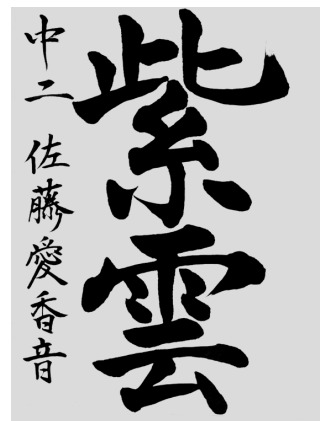 紫雲
中二 佐藤愛香音